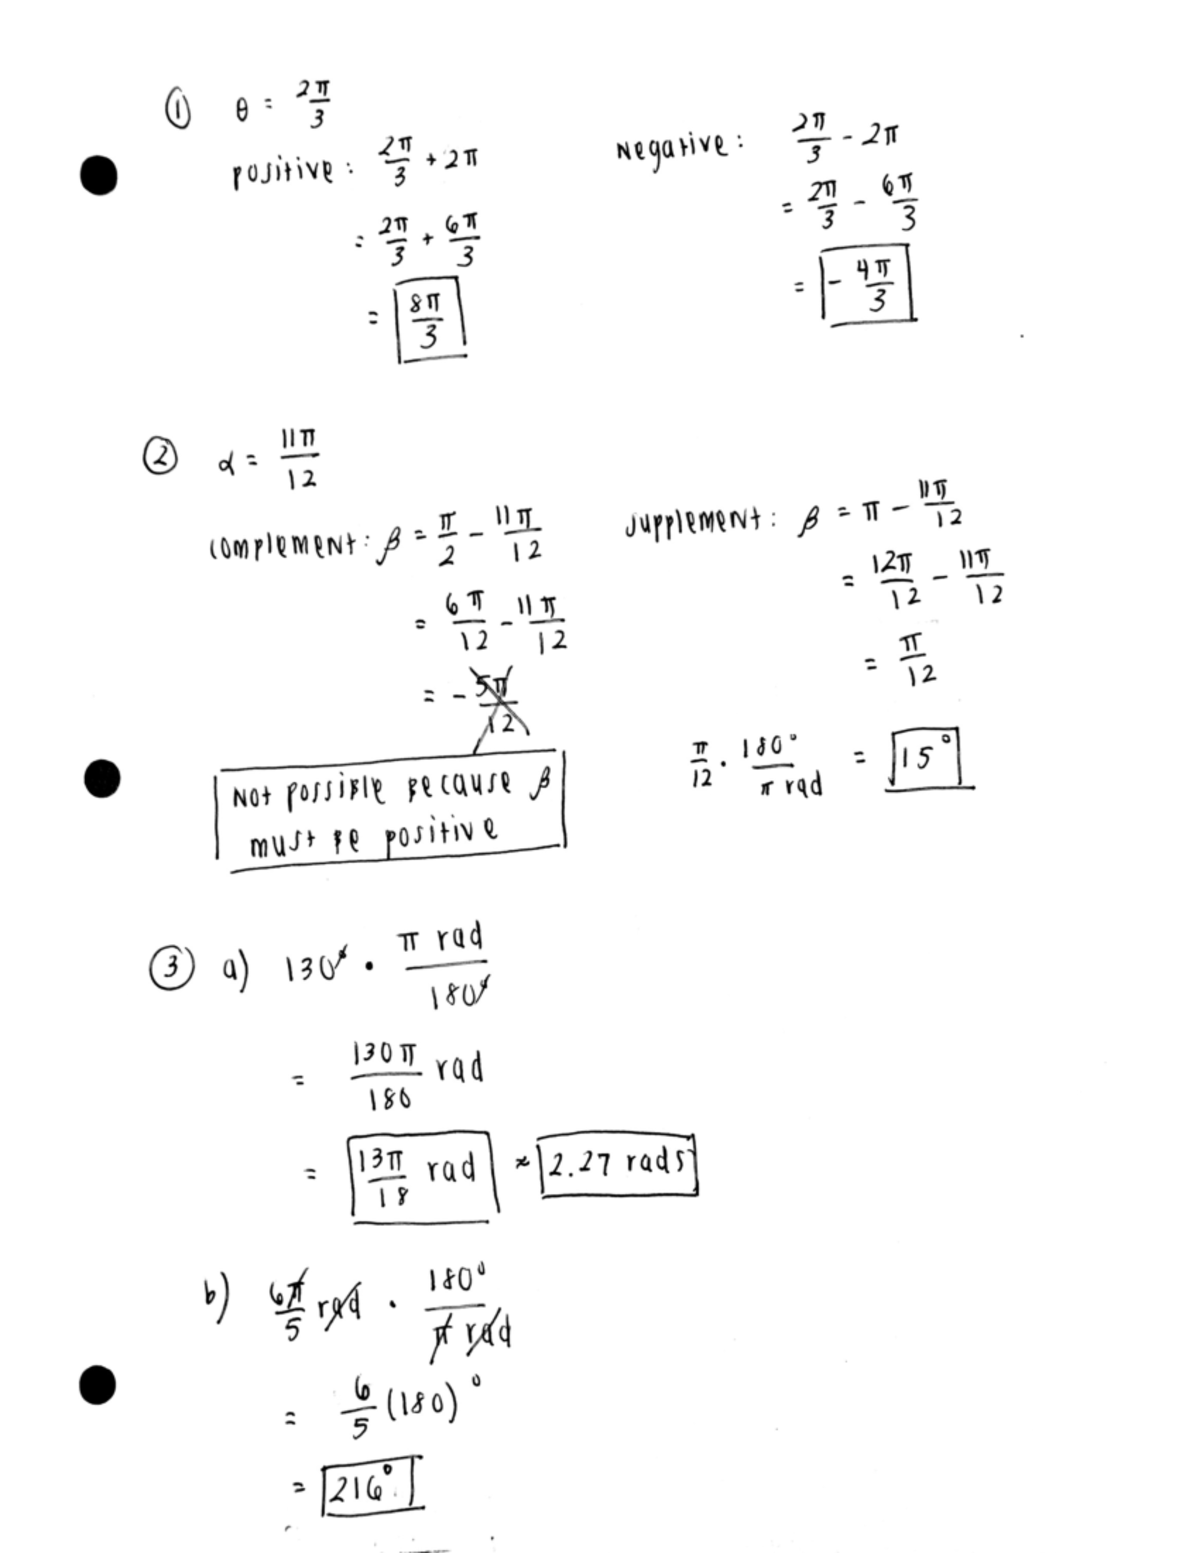 ① θ = 2π/3
positive: 2π/3 + 2π
= 2π/3 + 6π/3
= 8π/3
Negative: 2π/3 - 2π
= 2π/3 - 6π/3
= -4π/3
② α = 11π/12
complement: β = π/2 - 11π/12
= 6π/12 - 11π/12
= -5π/12
Not possible because β
must be positive
supplement: β = π - 11π/12
= 12π/12 - 11π/12
= π/12
π/12 · 180°/π rad = 15°
③ a) 130° · π rad/180°
= 130π/180 rad
= 13π/18 rad ≈ 2.27 rads
b) 6π/5 rad · 180°/π rad
= 6/5 (180)°
= 216°